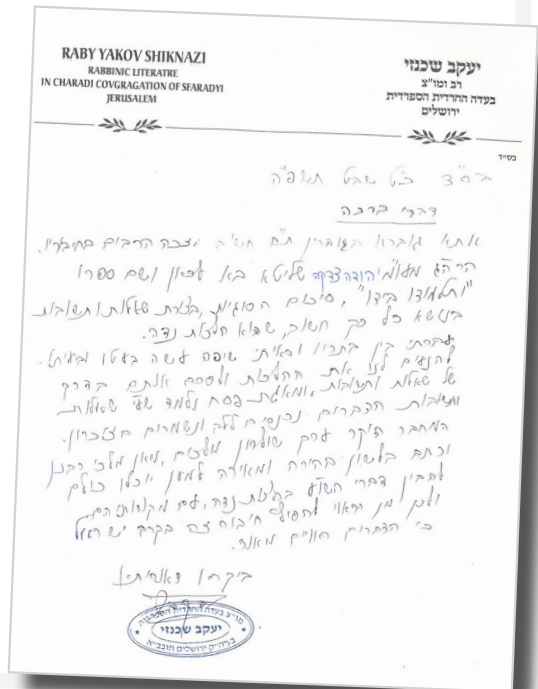 RABY YAKOV SHIKNAZI
RABBINIC LITERATRE
IN CHARADI COVGRAGATION OF SFARADYI
JERUSALEM
יעקב שכנזי
רב ומו"צ
בעדה החרדית הספרדית
ירושלים
בס"ד
בס"ד כ"ט שבט תשפ"ה
דברי ברכה
אתא גוברא בגוברין ת"ח הרבים בחיבוריו.
הרה"ג יהודה צדקה שליטא בא ושם ספרו
"ותלמודו בידו", סיכום הסוגיות, בצורת שאלות ותשובות
בנושא כל כך חשוב, שהוא הלכות נדה.
עברתי בין בתריו וראיתי שיפה עשה בעטו
להנעים לנו את ההלכות ולסכם אותם בדרך
של שאלות ותשובות, פסח שע"י שאלות
ותשובות הדברים נכנסים ללב ונשמרים בזכרון.
המחבר היקר ערך שולחן מלכים, מאן מלכי רבנן
וכתב בלשון בהירה ומאירה למען יוכלו כולם
להבין דברי השו"ע בהלכות נדה, עם מקורותיהם.
ולכן מן הראוי להפיץ חיבור זה בקרב ישראל
כי הדברים חשובים מאוד.
ביקרא דאורייתא
מו"צ בעדה החרדית הספרדית
יעקב שכנזי
בעיה"ק ירושלים תובב"א